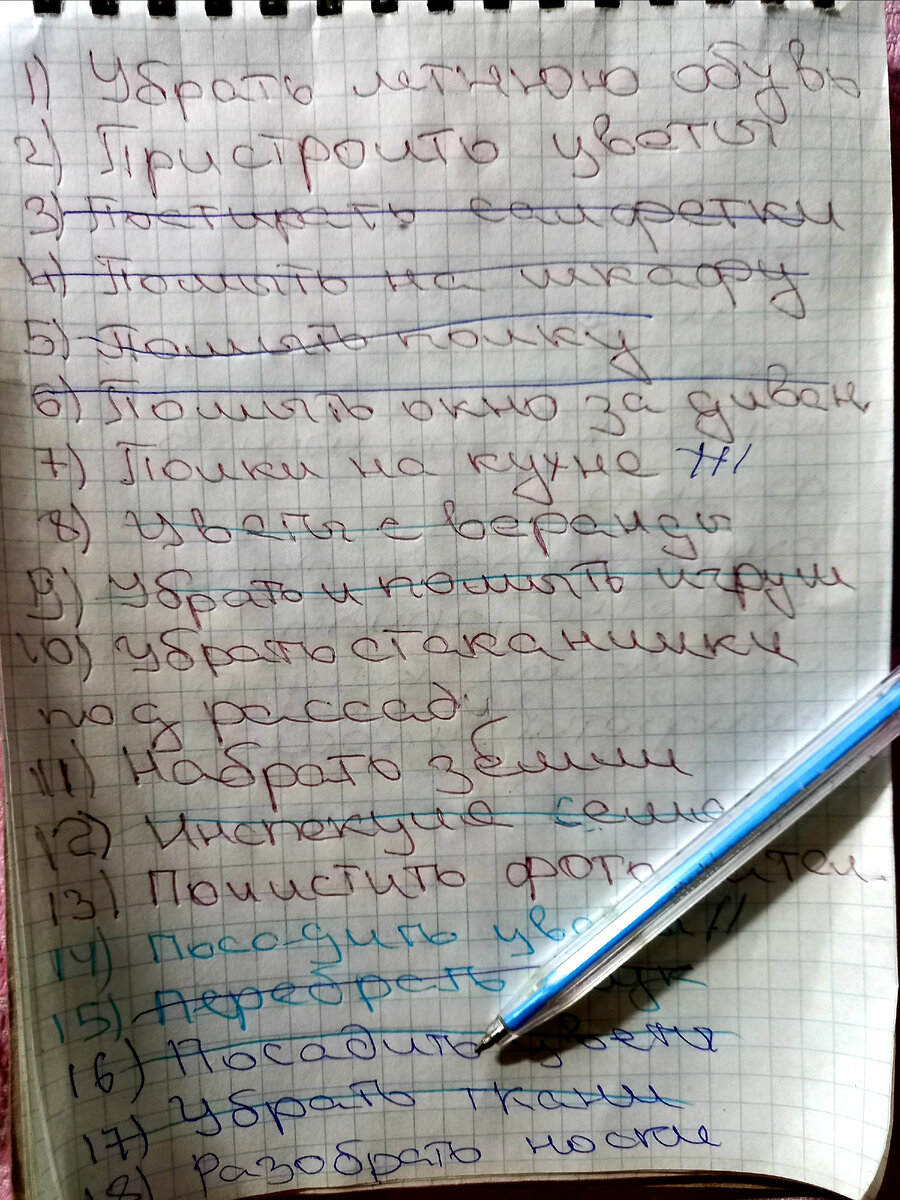 1) Убрать летнюю обувь
2) Пристроить цветы
3) Постирать салфетки
4) Помыть на шкафу
5) Помыть полку
6) Помыть окно за диван
7) Полки на кухне
8) Цветы с веранды
9) Убрать и помыть игруш
10) Убрать стаканчики
под рассад
11) Набрать земли
12) Инспекция
13) Почистить
14) Посадить
15) Перебрать лук
16) Посадить цветы
17) Убрать ткани
18) Разобрать носки